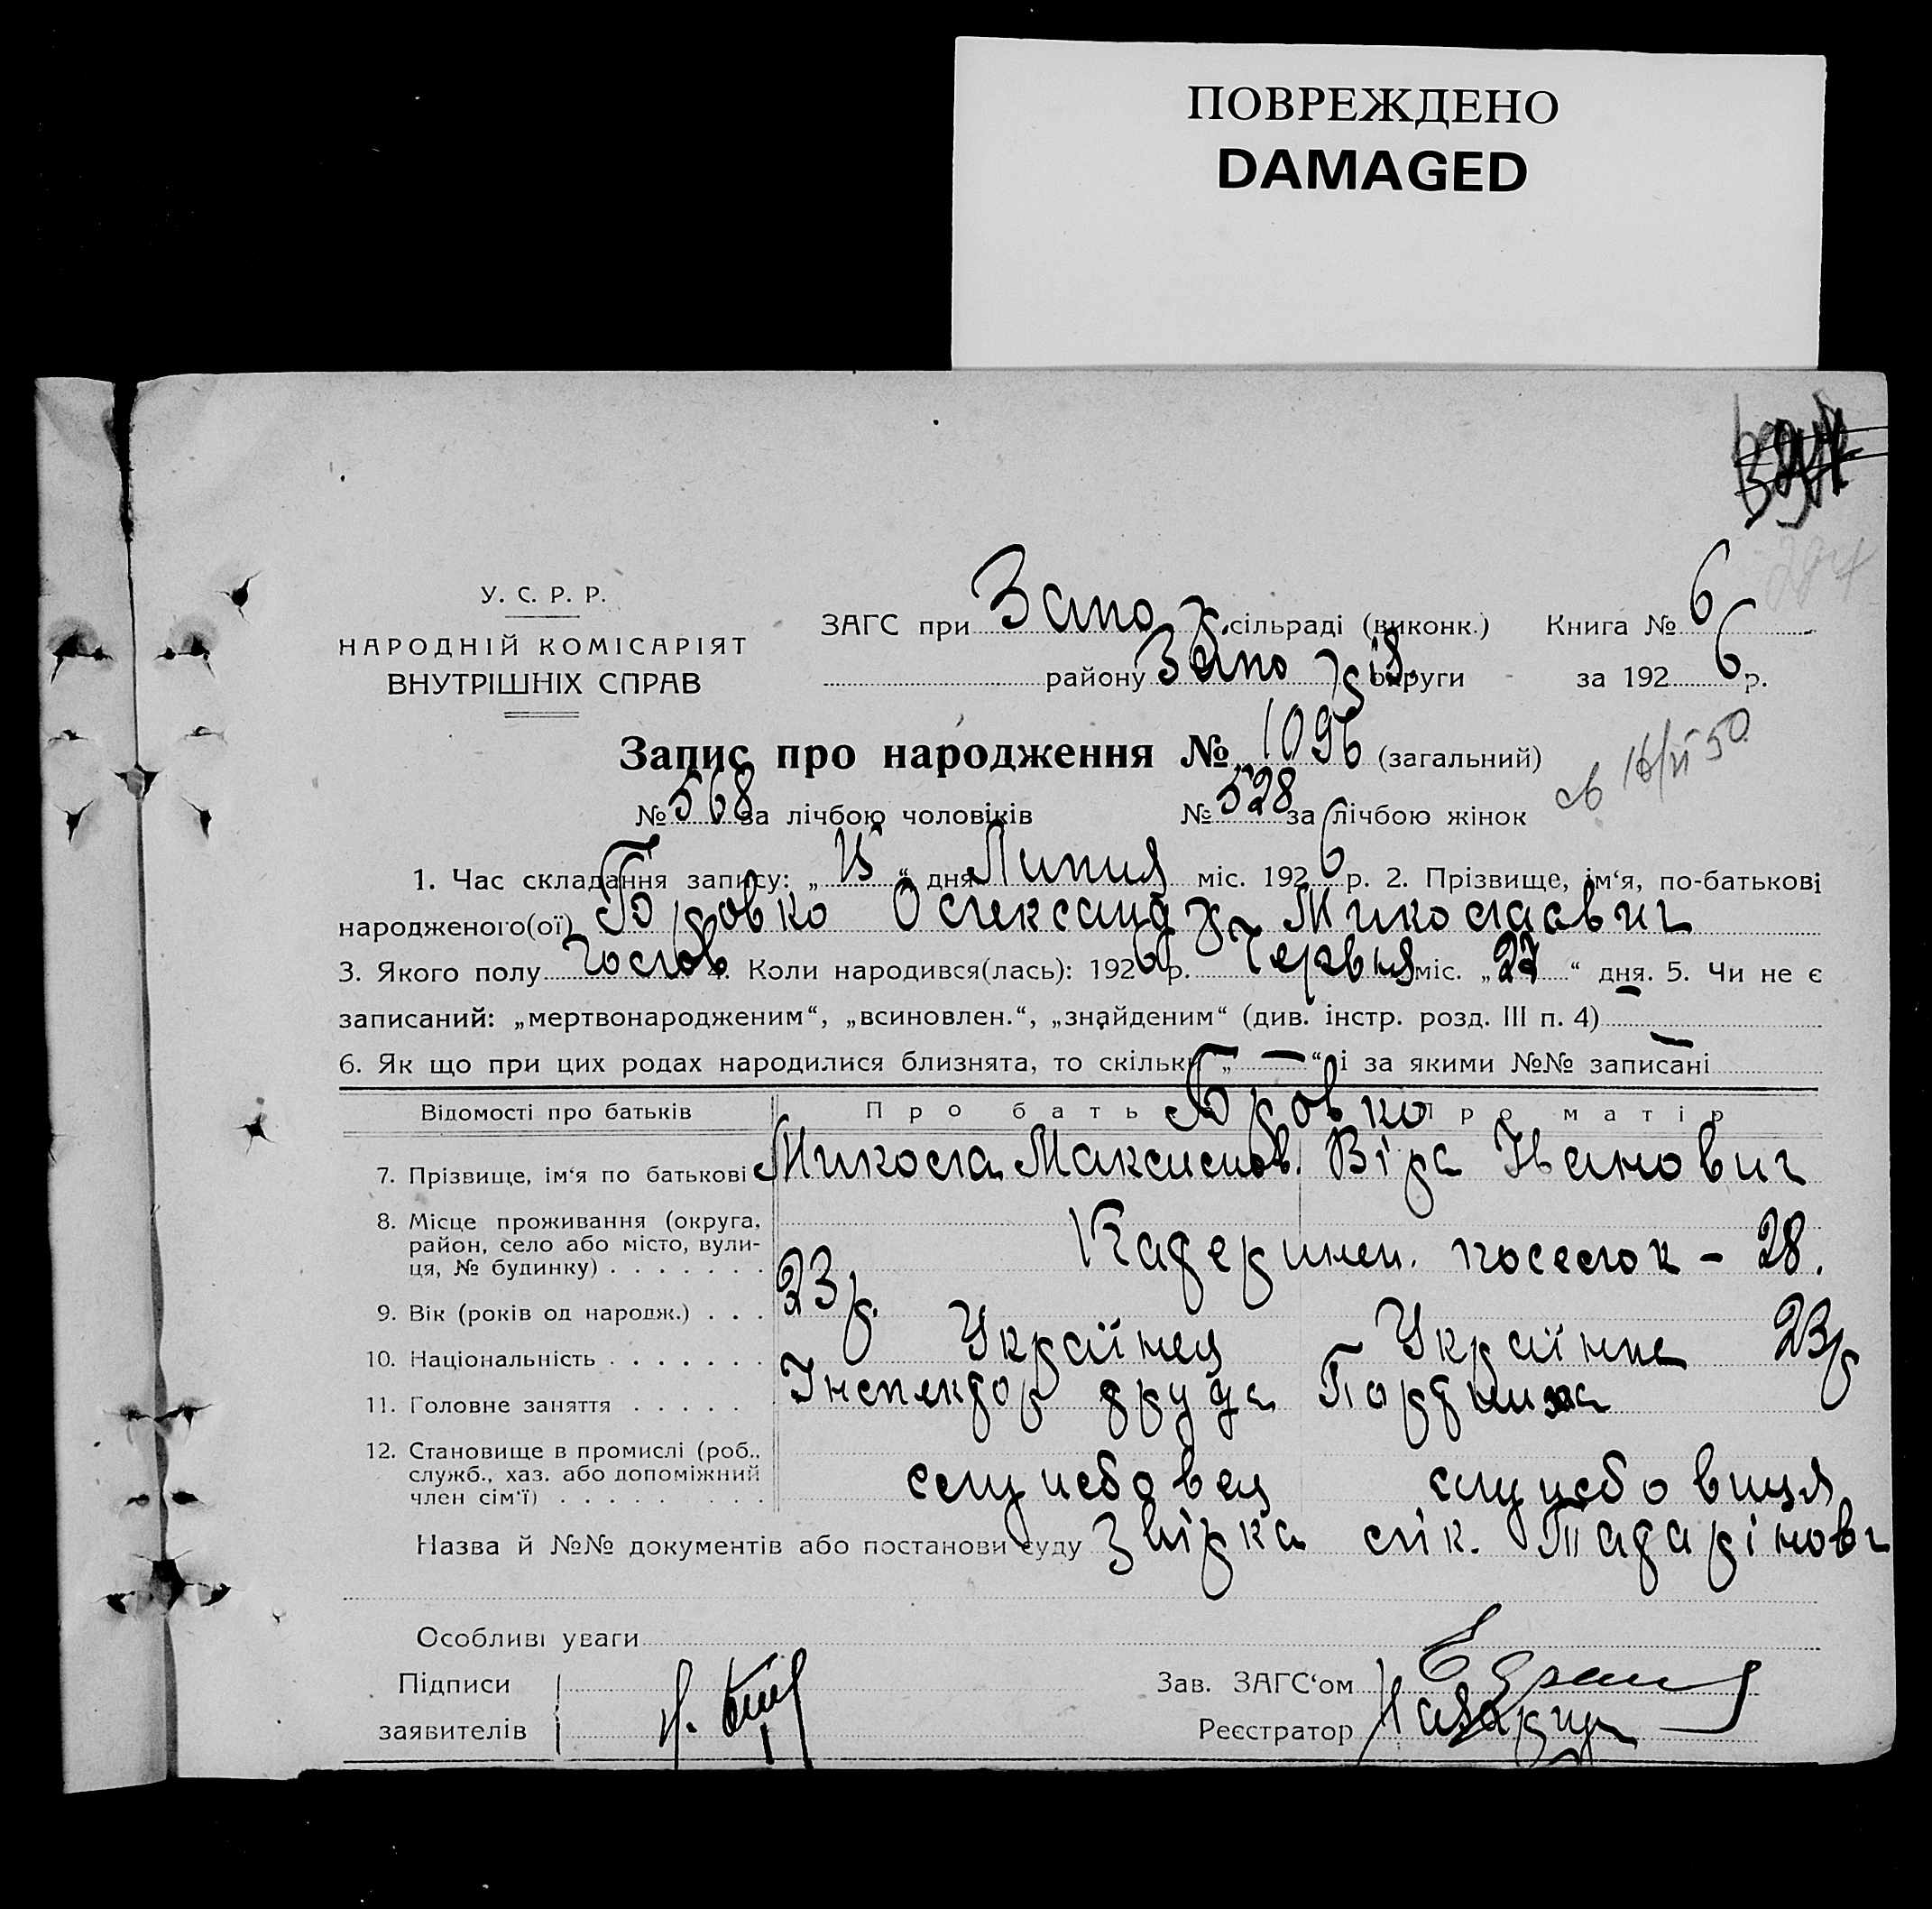 ПОВРЕЖДЕНО
DAMAGED
У. С. Р. Р.
НАРОДНІЙ КОМІСАРІЯТ
ВНУТРІШНІХ СПРАВ
ЗАГС при Запор. сільраді (виконк.) Книга № 6
району Запоріз. округи за 1926 р.
Запис про народження № 1096 (загальний)
№ 568 за лічбою чоловіків № 528 за лічбою жінок
1. Час складання запису: „ “ дня Липня міс. 1926 р. 2. Прізвище, ім‘я, по-батькові
народженого(ої) Бровко Олександр Миколаєвич
3. Якого полу чолов 4. Коли народився(лась): 1926 р. Червня міс. „27“ дня. 5. Чи не є
записаний: „мертвонародженим“, „всиновлен.“, „знайденим“ (див. інстр. розд. III п. 4) —
6. Як що при цих родах народилися близнята, то скільки „—“ і за якими №№ записані —
Відомості про батьків Про батька Бровко Про матір
7. Прізвище, ім‘я по батькові Микола Максимов. Віра Іванович
8. Місце проживання (округа,
район, село або місто, вули-
ця, № будинку) Катеринен. поселок – 28.
9. Вік (років од народж.) 23 р. 23 р
10. Національність Українец Українка
11. Головне заняття Інспектор труда
12. Становище в промислі (роб.,
служб., хаз. або допоміжний
член сім‘ї) службовец службовиця
Назва й №№ документів або постанови суду Звірка лік. Татарінова
Особливі уваги
Підписи
заявителів
Зав. ЗАГС‘ом
Реєстратор